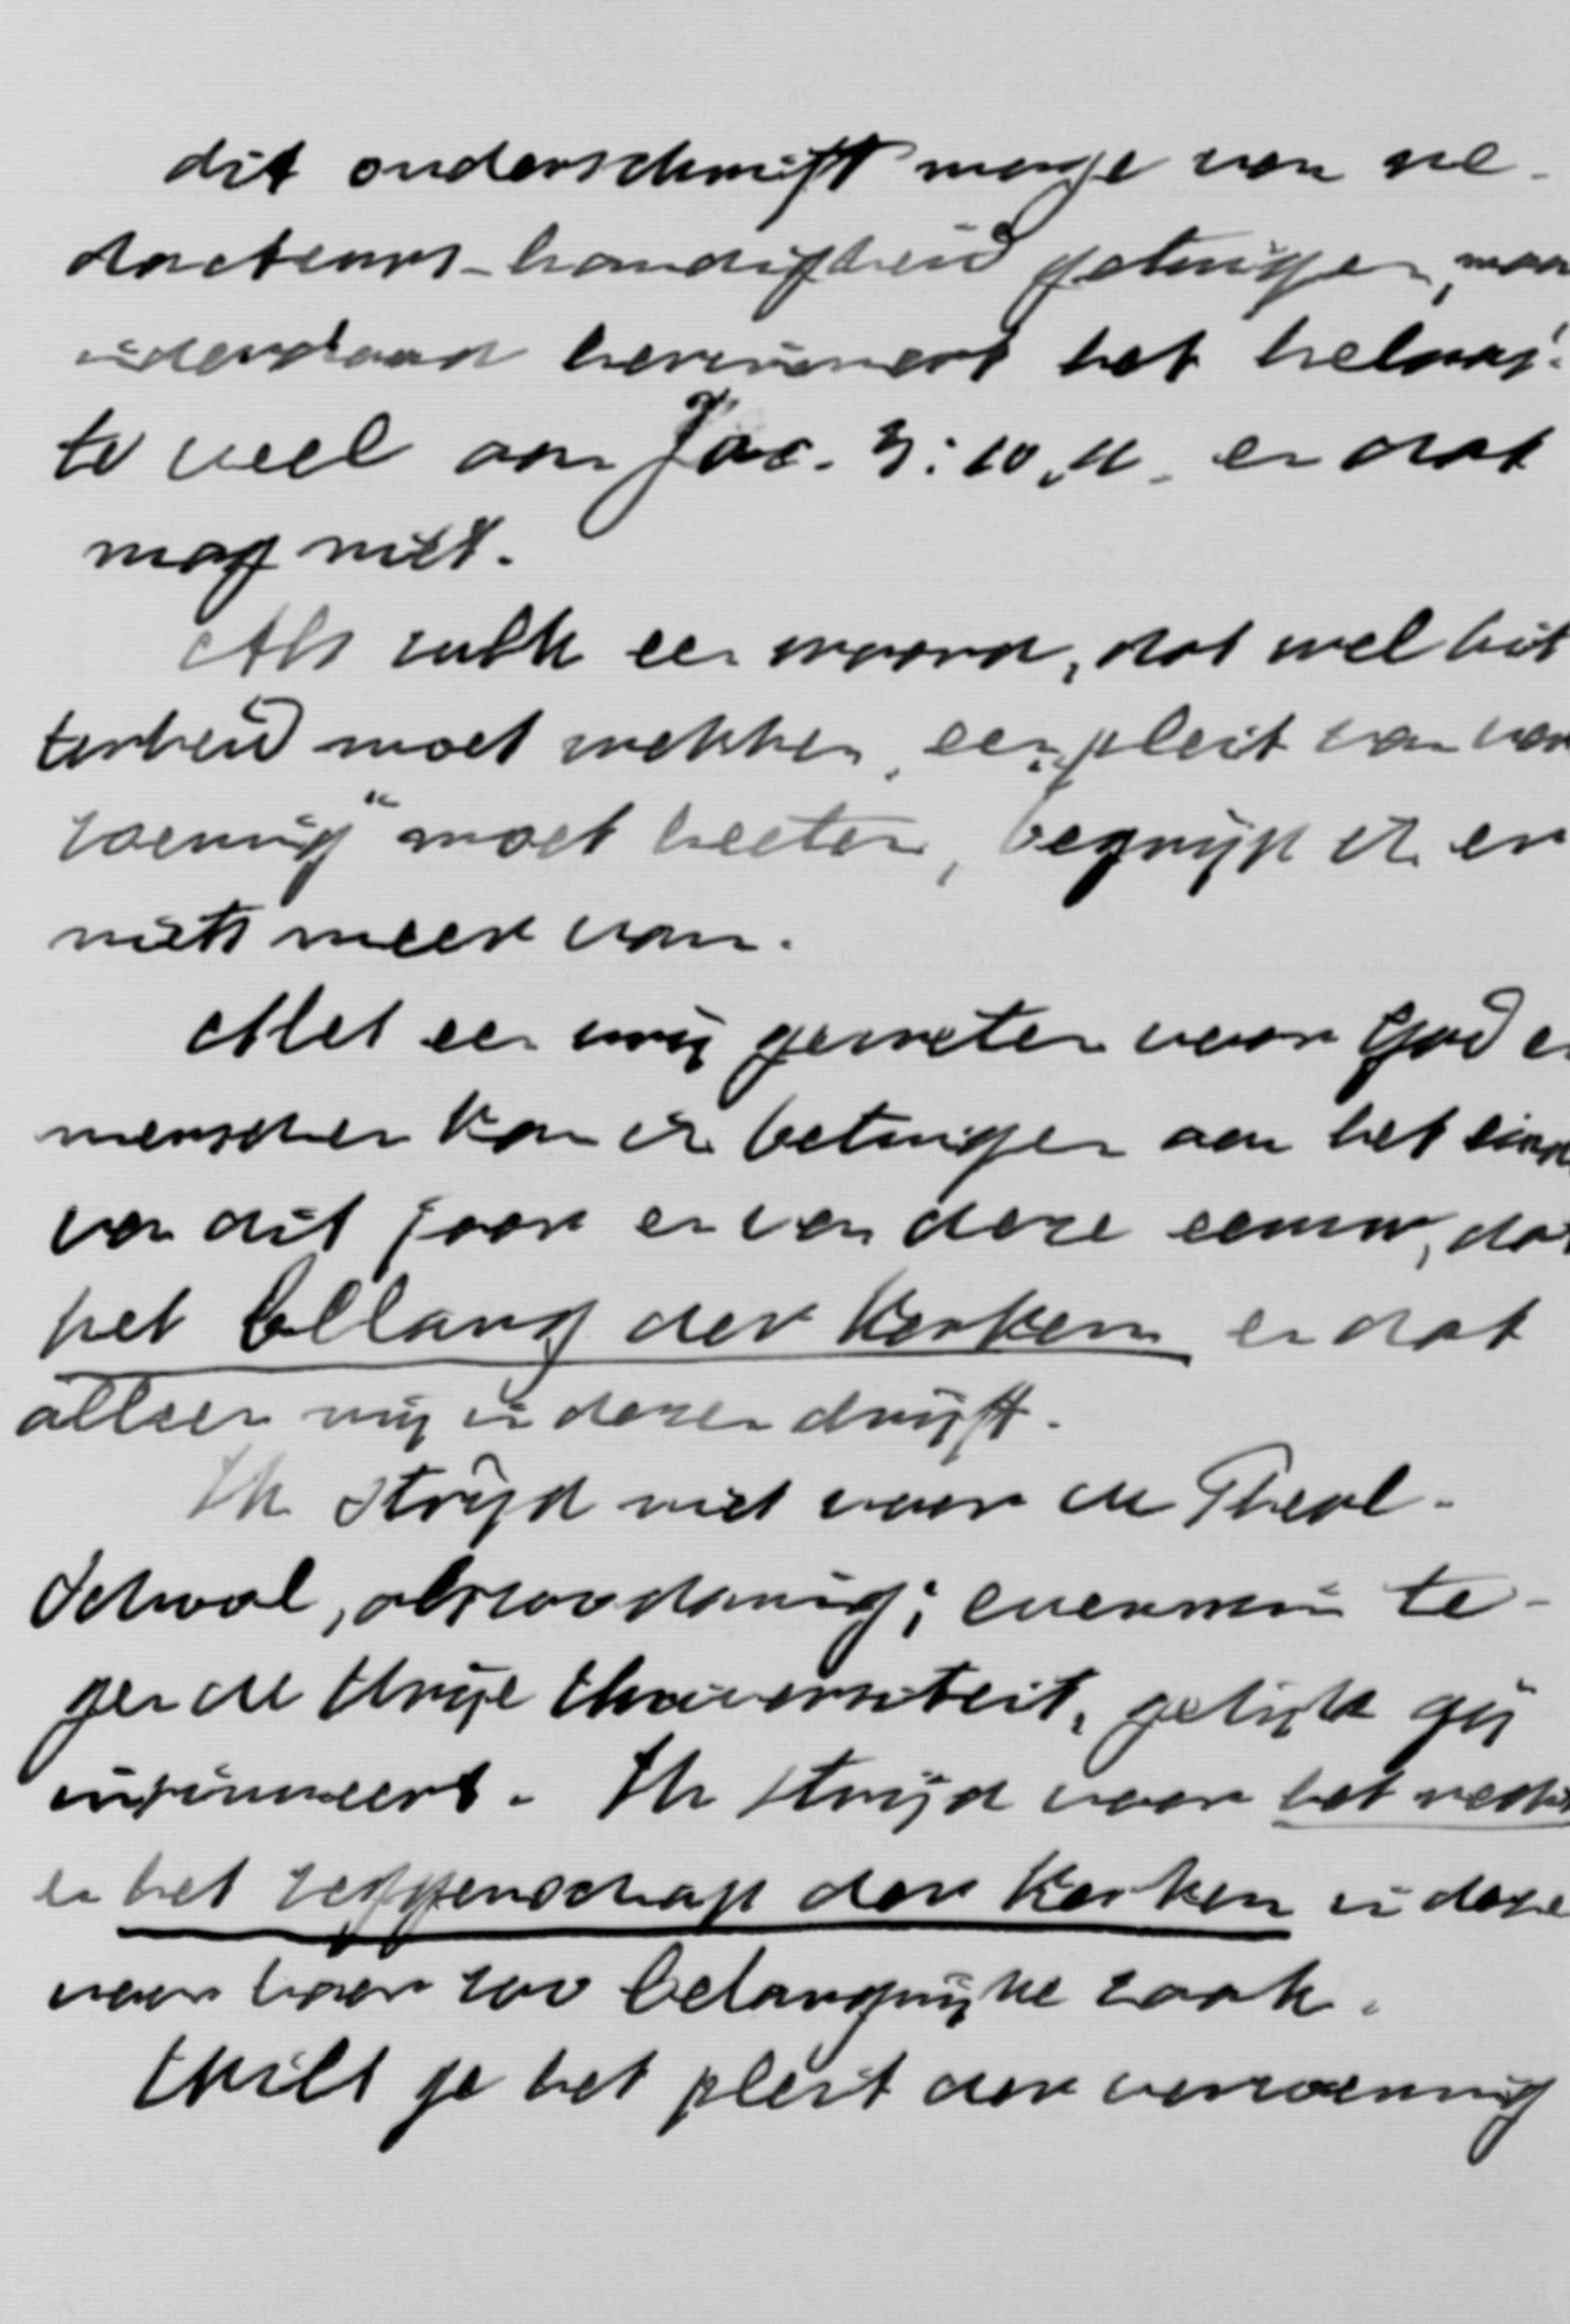 dit onderschrift moge van re-
dacteurs-handigheid getuigen, maar
inderdaad herinnert het helaas!
te veel aan Jac. 3:10, 11. en dat
mag niet.
Als zulk een woord, dat wel bit
terheid moet wekken, een „pleit van ver
zoening" moet heeten, begrijp ik er
niets meer van.
Met een vrij geweten voor God en
menschen kan ik betuigen aan het eind
van dit jaar en van deze eeuw, dat
het belang der Kerken en dat
alleen mij in dezen drijft.
Ik strijd niet voor de Theol.
School, als zoodanig; evenmin te-
gen de Vrije Universiteit, gelijk gij
insinueert. Ik strijd voor het recht
en het zeggenschap der Kerken in deze
voor haar zoo belangrijke zaak.
Wilt ge het pleit der verzoening